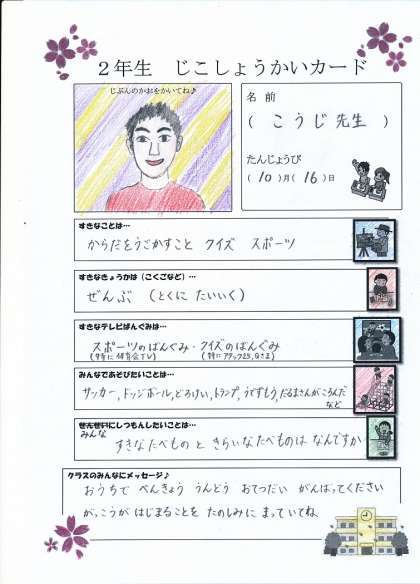 2年生 じこしょうかいカード
じぶんのかおをかいてね♪
名前
( こうじ先生 )
たんじょうび
( 10 )月( 16 )日
すきなことは…
からだをうごかすこと クイズ スポーツ
すきなきょうかは(こくごなど)…
ぜんぶ (とくに たいいく)
すきなテレビばんぐみは…
スポーツのばんぐみ・クイズのばんぐみ
みんなであそびたいことは…
サッカー, ドッジボール, どろけい, トランプ, うでずもう, だるまさんがころんだ
など
せんせいにしつもんしたいことは…
みんな
すきなたべもの と きらいなたべものは なんですか
クラスのみんなにメッセージ♪
おうちで べんきょう うんどう おてつだい がんばってください
がっこうが はじまることを たのしみに まっていてね。